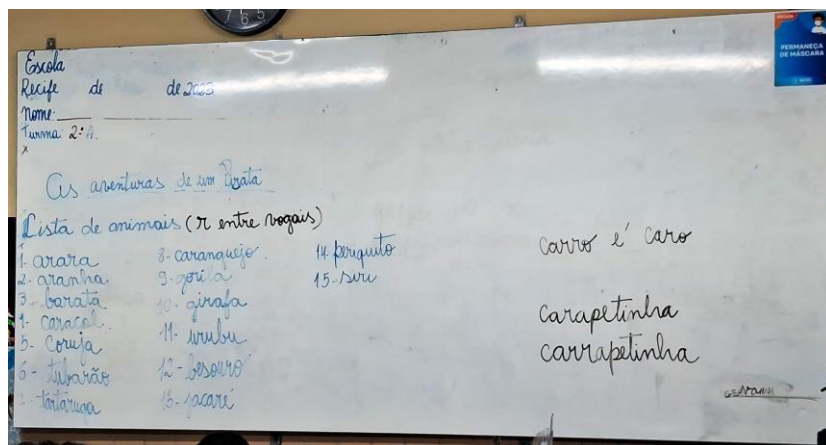 7 6 5
PERMANEÇA
DE MÁSCARA
Escola
Recife de de 2023
Nome:
Turma: 2º A.
x
As aventuras de um Pirata
Lista de animais (r entre vogais)
1- arara
2- aranha
3- barata
4- caracol.
5- Coruja
6- tubarão
7- tartaruga
8- caranquejo.
9- gorila
10- girafa
11- urubu
12- besouro
13- jacaré
14 periquito
15- siri
Carro é caro
carapetinha
carrapetinha